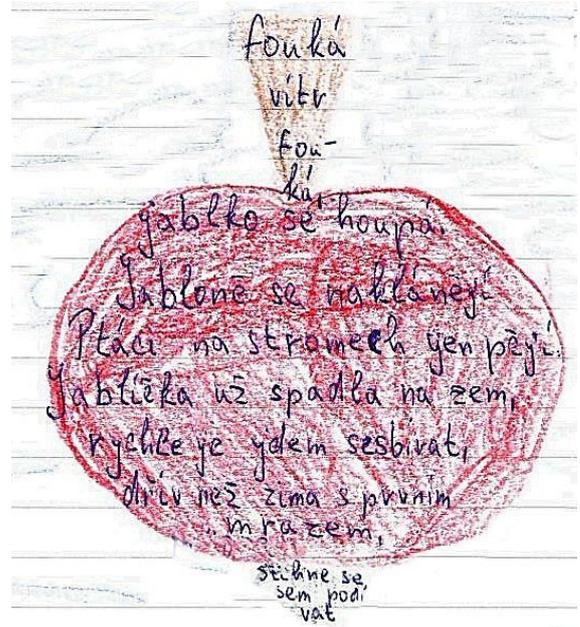 fouká
vítr
fou-
ká,
jablko se houpá.
Jabloně se naklánějí
Ptáci na stromech jen pějí.
Jablíčka už spadla na zem,
rychle je jdem sesbírat,
dřív než zima s prvním
mrazem,
stihne se
sem podí
vat